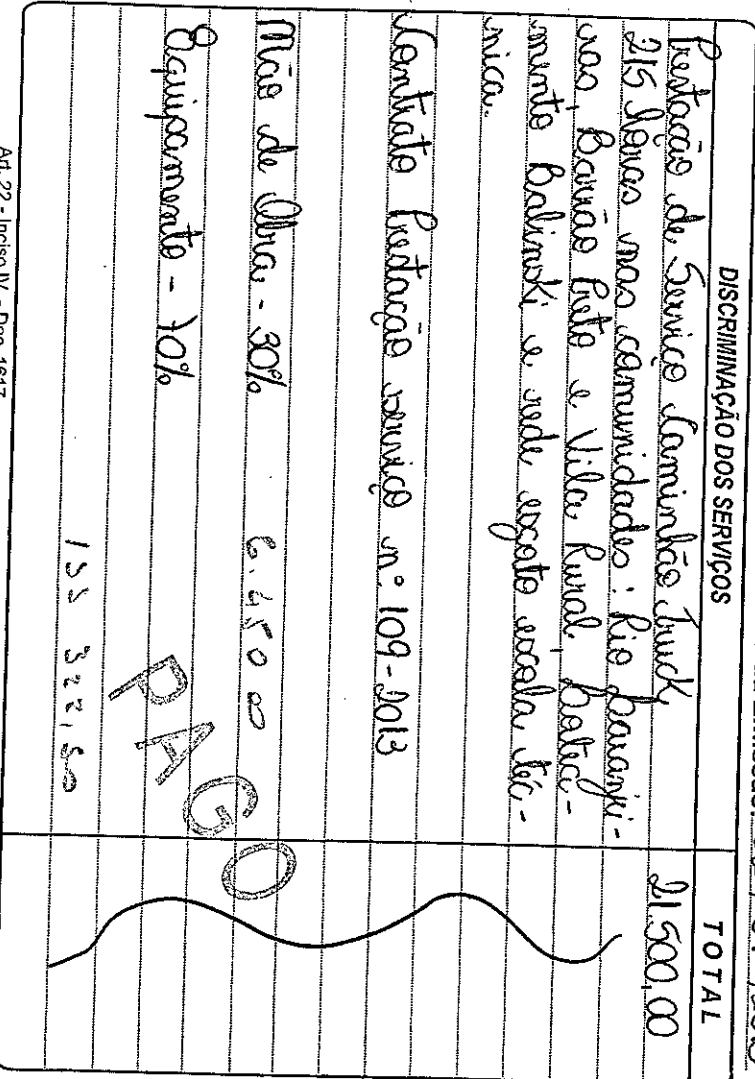 DISCRIMINAÇÃO DOS SERVIÇOS
TOTAL
Prestação de Serviço Caminhão Truck
21.500,00
215 Horas nas comunidades: Rio Laranji-
nas, Barrão Preto e Vila Rural
mento Balinski e rede esgoto escola téc-
nica.
Contrato Prestação serviço nº 109-2013
Mão de Obra - 30% 6.450 00
Equipamento - 70%
PAGO
ISS 322,50
Art. 22 - Inciso IV - Dec. 1617